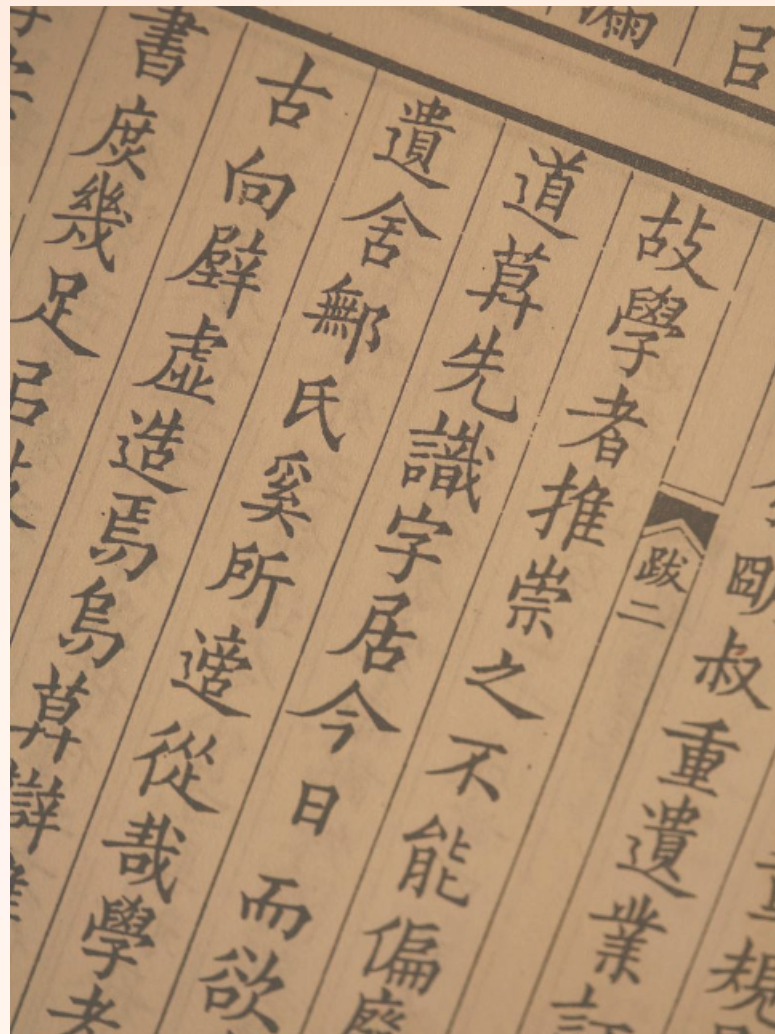 重規
朙叔重遺業
跋二
故學者推崇之不能偏廢
道莫先識字居今日而欲
遺舍鄦氏奚所適從哉學者
古向壁虛造焉烏莫辯
書庶幾足㠯
㠯